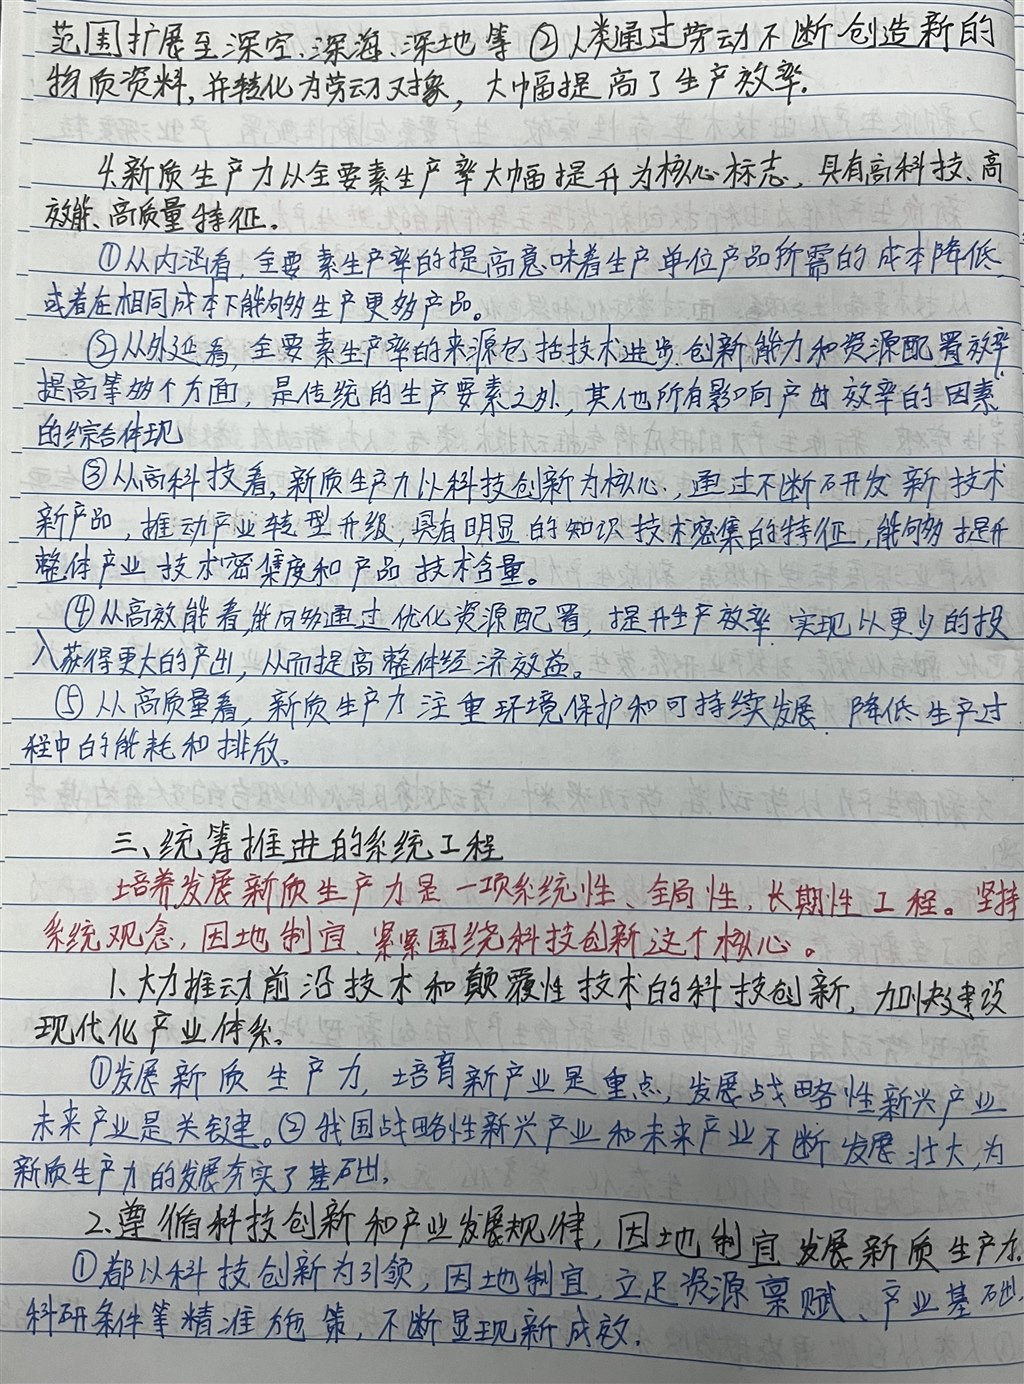 范围扩展至深空、深海、深地等②人类通过劳动不断创造新的
物质资料,并转化为劳动对象,大幅提高了生产效率.
4.新质生产力以全要素生产率大幅提升为核心标志、具有高科技、高
效能、高质量特征.
①从内涵看,全要素生产率的提高意味着生产单位产品所需的成本降低,
或者在相同成本下能够生产更多产品。
②从外延看,全要素生产率的来源包括技术进步、创新能力和资源配置效率
提高等多个方面,是传统的生产要素之外,其他所有影响产出效率的因素
的综合体现
③从高科技看,新质生产力以科技创新为核心.,通过不断研发新技术
新产品,推动产业转型升级,具有明显的知识技术密集的特征,能够提升
整体产业技术密集度和产品技术含量。
④从高效能看,能够通过优化资源配置,提升生产效率,实现以更少的投
入获得更大的产出,从而提高整体经济效益。
⑤从高质量看,新质生产力注重环境保护和可持续发展.降低生产过
程中的能耗和排放。
三、统筹推进的系统工程
培养发展新质生产力是一项系统性、全局性、长期性工程。坚持
系统观念,因地制宜、紧紧围绕科技创新这个核心。
1、大力推动前沿技术和颠覆性技术的科技创新,加快建设
现代化产业体系。
①发展新质生产力,培育新产业是重点,发展战略性新兴产业
未来产业是关键。②我国战略性新兴产业和未来产业不断发展壮大,为
新质生产力的发展夯实了基础,
2.遵循科技创新和产业发展规律,因地制宜发展新质生产力.
①都以科技创新为引领,因地制宜,立足资源禀赋、产业基础,
科研条件等精准施策,不断显现新成效.